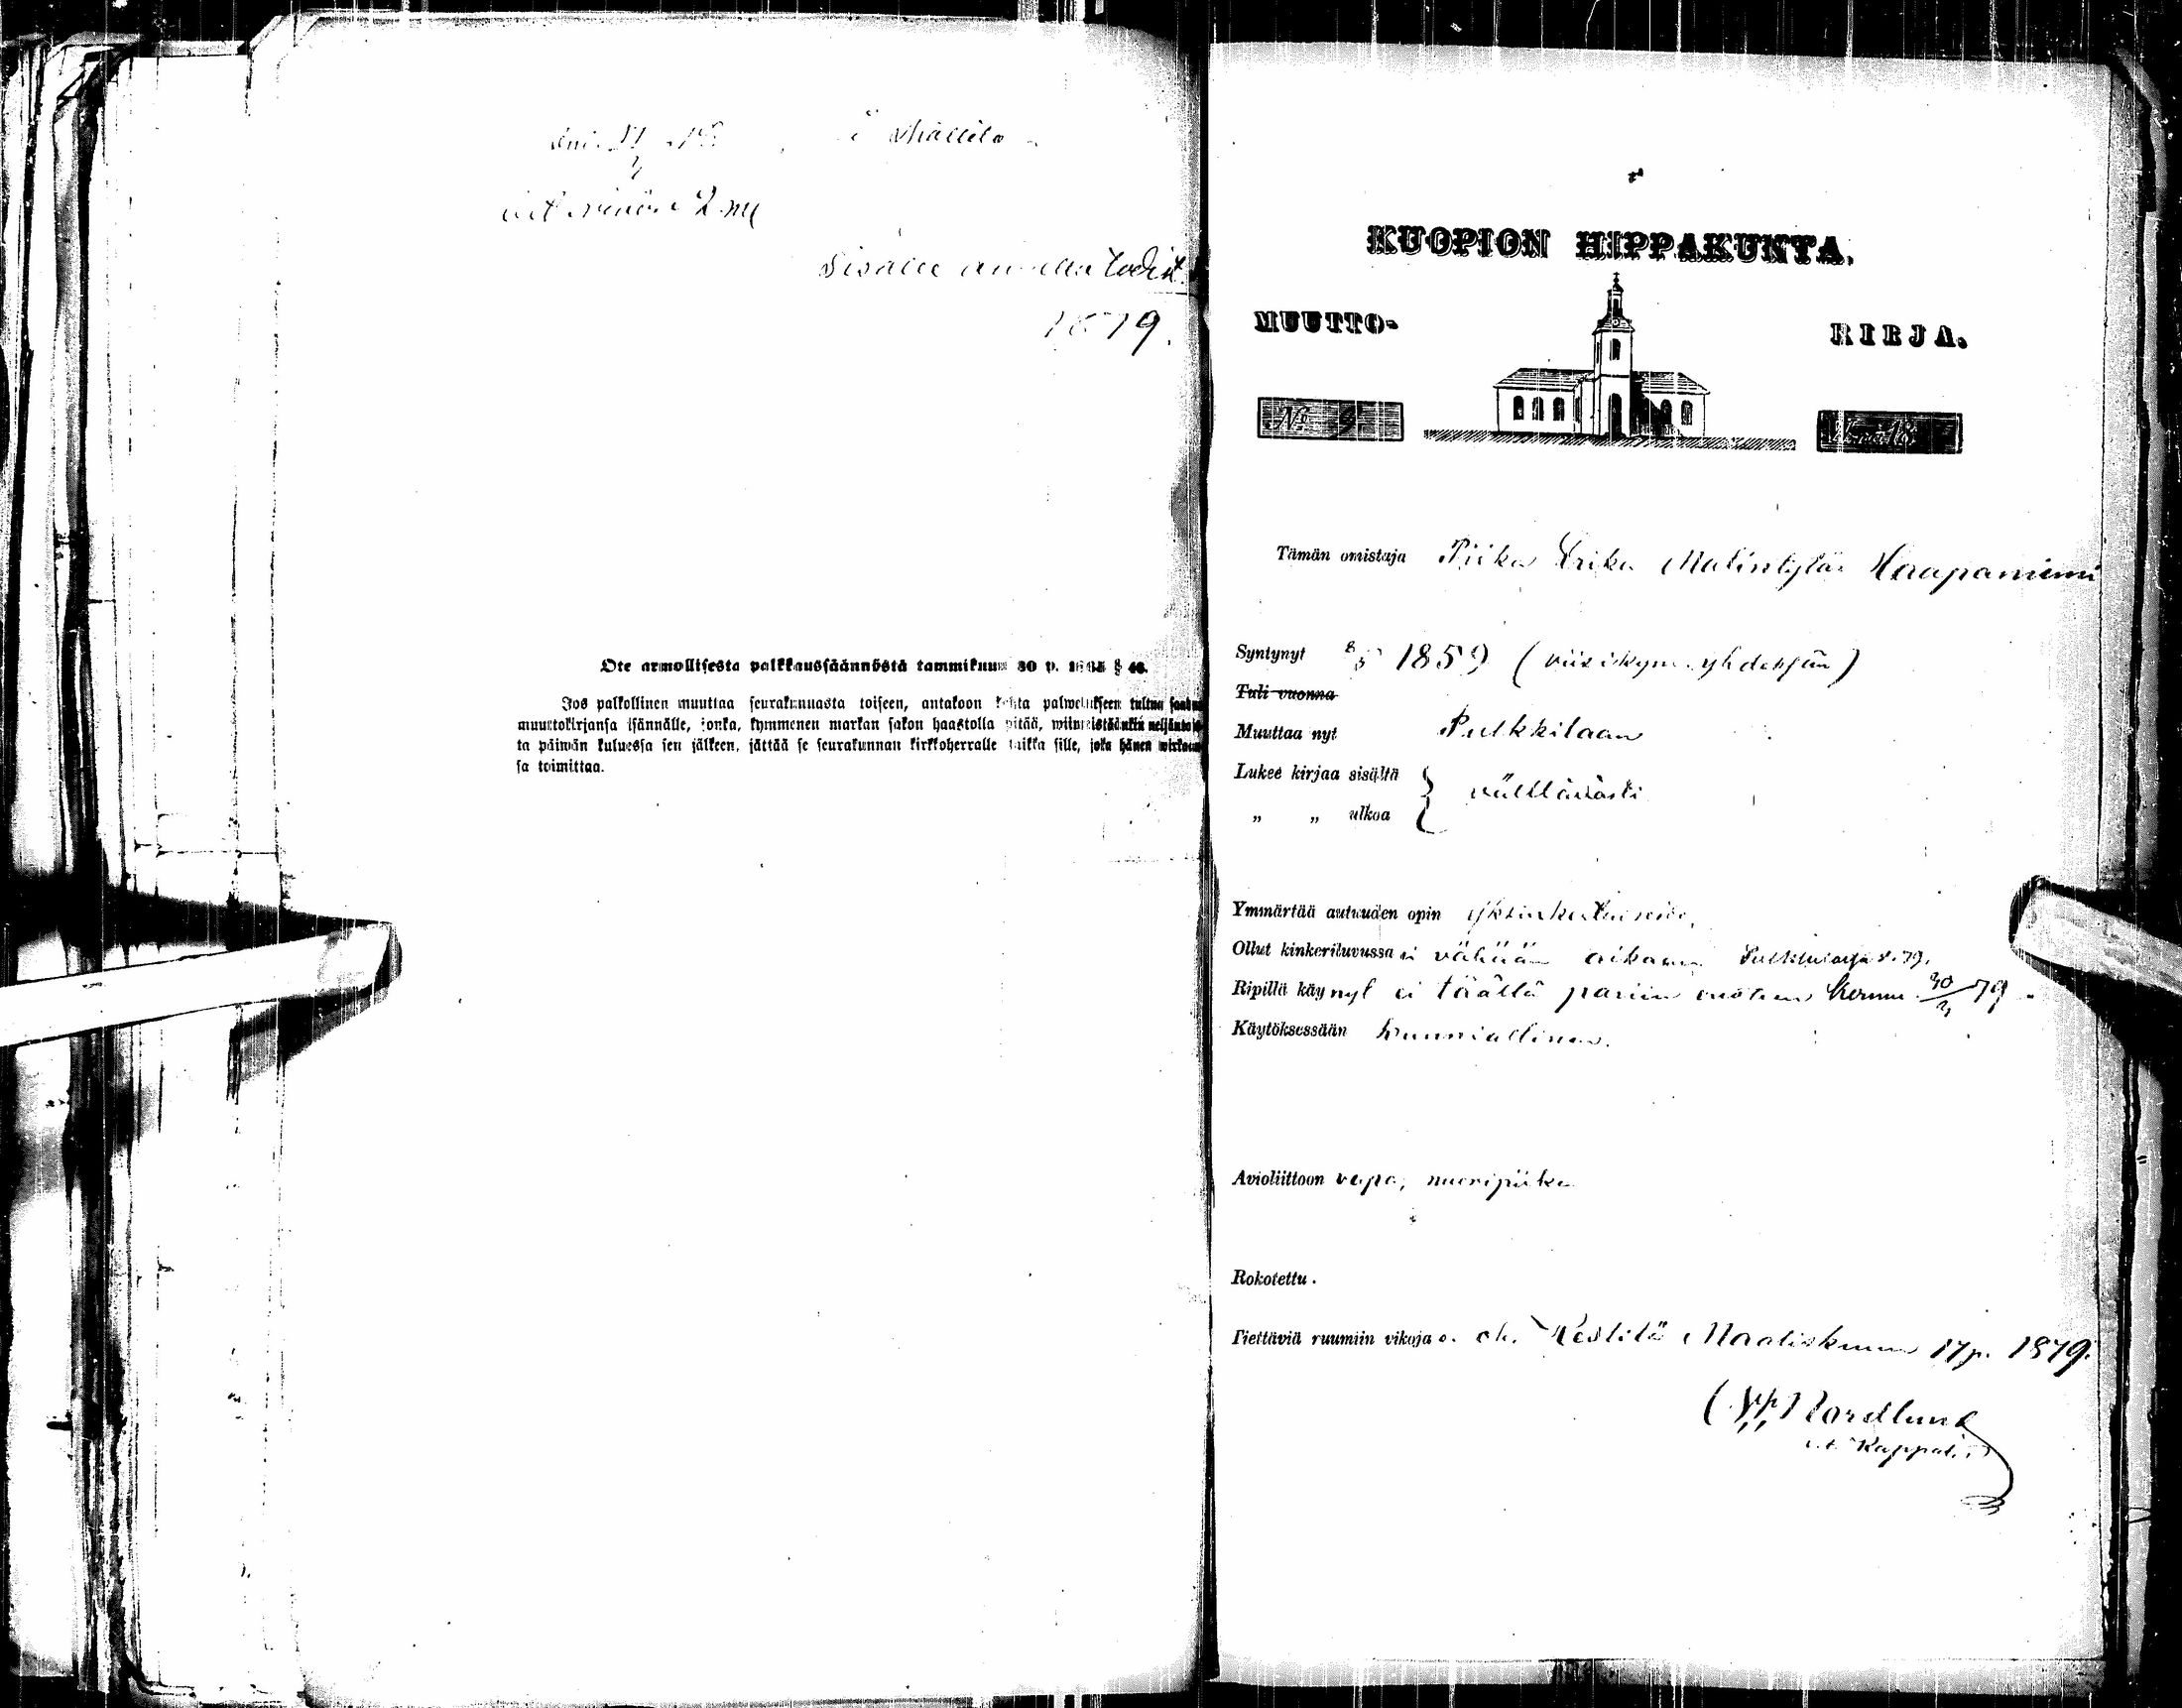 Sisälle
1879.
Ote armollisesta palkkaussäännöstä tammikuun 30 p. 1865 § 46.
Jos palkollinen muuttaa seurakunnasta toiseen, antakoon kohta palwelukseen tultua saadun
muuttokirjansa isännälle, jonka, kymmenen markan sakon haastolla pitää, wiimeistäänkin neljäntois-
ta päiwän kuluessa sen jälkeen, jättää se seurakunnan kirkkoherralle taikka sille, joka hänen wirkaan-
sa toimittaa.
KUOPION HIPPAKUNTA.
MUUTTO-
KIRJA.
No 9
Tämän omistaja Piika Erika Matintytär Haapaniemi
Syntynyt 8/5 1859 (viisikymm. yhdeksän)
Tuli vuonna
Muuttaa nyt Pulkkilaan
Lukee kirjaa sisältä } välttävästi
„ „ ulkoa
Ymmärtää autuuden opin yksinkertaisesti,
Ollut kinkeriluvussa ei vähään aikaan 79.
Ripillä käynyt ei täällä pariin vuoteen 79
Käytöksessään kunniallinen.
Avioliittoon vapa, nuoripiika
Rokotettu.
Tiettäviä ruumiin vikoja Kestilä Maaliskuun 17 p. 1879.
Nordlund
v.t. Kappal.